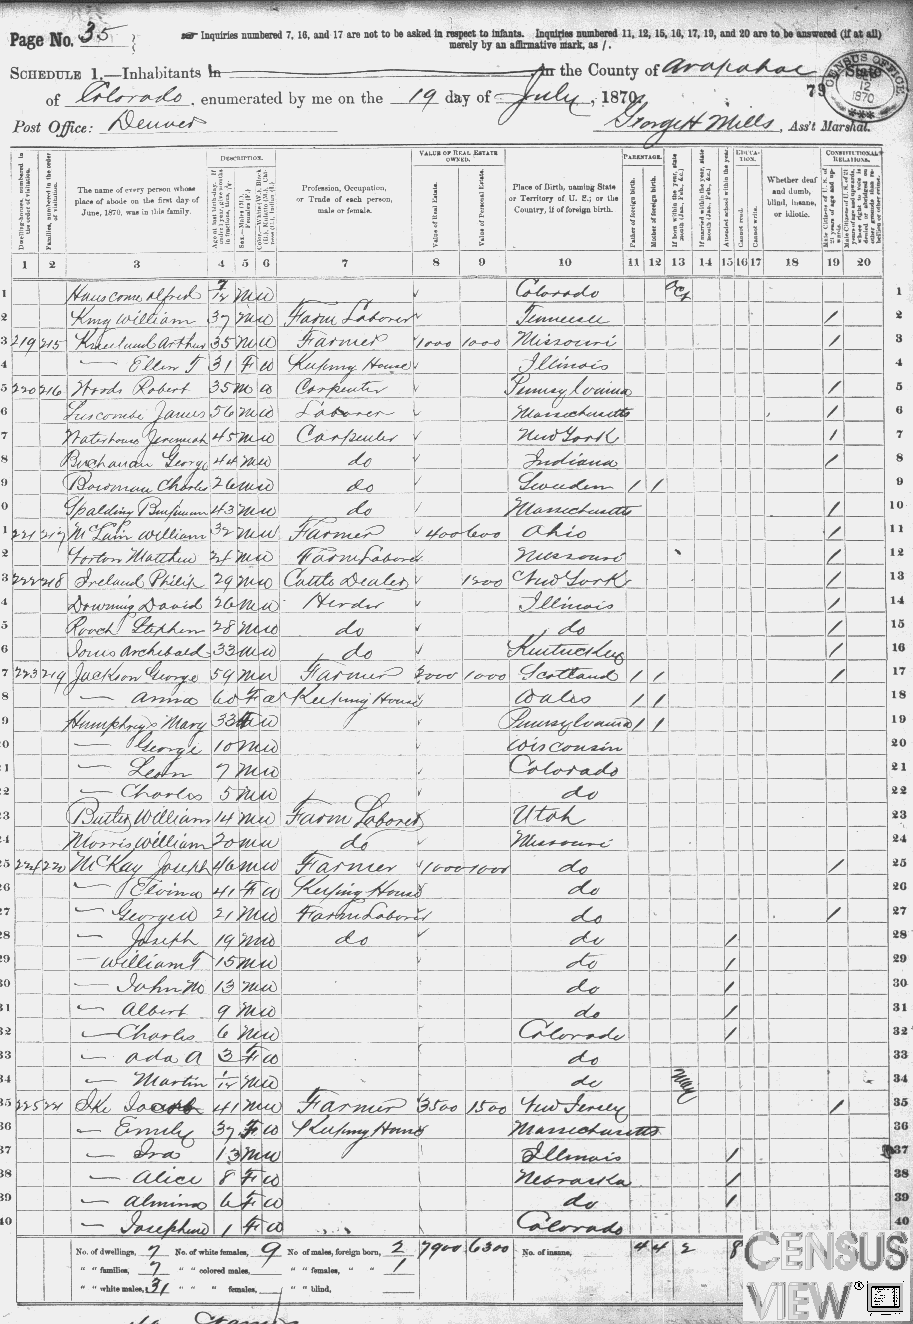 Page No. 35
Inquiries numbered 7, 16, and 17 are not to be asked in respect to infants. Inquiries numbered 11, 12, 15, 16, 17, 19, and 20 are to be answered (if at all)
merely by an affirmative mark, as /.
SCHEDULE 1.—Inhabitants in , in the County of Arapahoe, State
of Colorado, enumerated by me on the 19 day of July, 1870.
79
CENSUS OFFICE 12 1870
Post Office: Denver
George H Mills, Ass't Marshal.
Dwelling-houses, numbered in the order of visitation.
Families, numbered in the order of visitation.
The name of every person whose place of abode on the first day of June, 1870, was in this family.
DESCRIPTION.
Profession, Occupation, or Trade of each person, male or female.
VALUE OF REAL ESTATE OWNED.
Value of Real Estate.
Value of Personal Estate.
Place of Birth, naming State or Territory of U. S.; or the Country, if of foreign birth.
PARENTAGE.
Father of foreign birth.
Mother of foreign birth.
If born within the year, state month (Jan. Feb., &c.)
If married within the year, state month (Jan. Feb., &c.)
EDUCATION.
Attended school within the year.
Cannot read.
Cannot write.
Whether deaf and dumb, blind, insane, or idiotic.
CONSTITUTIONAL RELATIONS.
1 2 3 4 5 6 7 8 9 10 11 12 13 14 15 16 17 18 19 20
1 Hanscome Alfred 7/12 M W Colorado Oct 1
2 King William 37 M W Farm Laborer Tennessee / 2
3 219 215 Arthur 35 M W Farmer 1000 1000 Missouri / 3
4 — Ellen T 31 F W Keeping House Illinois 4
5 220 216 Woods Robert 35 M W Carpenter Pennsylvania / 5
6 Luscombe James 56 M W Laborer Massachusetts / 6
7 Waterhouse Jeremiah 45 M W Carpenter New York / 7
8 Buchanan George 44 M W do Indiana / 8
9 Bowman Charles 26 M W do Sweeden / / 9
0 Spalding Benjamin 43 M W do Massachusetts / 10
1 221 217 McLain William 32 M W Farmer 400 600 Ohio / 11
2 Matthew M W Farm Labore Missouri / 12
3 222 218 Ireland Philip 29 M W Cattle Dealer 1200 New York / 13
4 Downing David 26 M W Herder Illinois / 14
5 Stephen 28 M W do do / 15
6 Archibald 33 M W do Kentuckey / 16
7 223 219 Jackson George 59 M W Farmer 2000 1000 Scotland / / / 17
8 — Anna 60 F W Keeping House Wales / / 18
9 Humphreys Mary 33 F W Pennsylvania / / 19
20 — George 10 M W Wisconsin 20
21 — Leon 7 M W Colorado 21
22 — Charles 5 M W do 22
23 William 14 M W Farm Laborer Utah 23
24 Morris William 20 M W do Missouri 24
25 224 220 McKay Joseph 46 M W Farmer 1000 1000 do / 25
26 — Elvina 41 F W Keeping House do 26
27 — George W 21 M W Farm Laborer do / 27
28 — Joseph 19 M W do do / 28
29 — William T 15 M W do / 29
30 — John M 13 M W do / 30
31 — Albert 9 M W do / 31
32 — Charles 6 M W Colorado / 32
33 — Ada A 3 F W do 33
34 — Martin 1/12 M W do May 34
35 225 221 Ike Jacob 41 M W Farmer 3500 1500 New Jersey / 35
36 — Emily 37 F W Keeping House Massachusetts 36
37 — Ira 13 M W Illinois / 37
38 — Alice 8 F W Nebraska / 38
39 — Almina 6 F W do / 39
40 — Josephine 1 F W Colorado 40
No. of dwellings, 7 No. of white females, 9 No. of males, foreign born, 2 7900 6300 No. of insane, 4 4 2 8
" " families, 7 " " colored males, " " females, " " 1
" " white males, 31 " " " females, " " blind,
CENSUS
VIEW ®